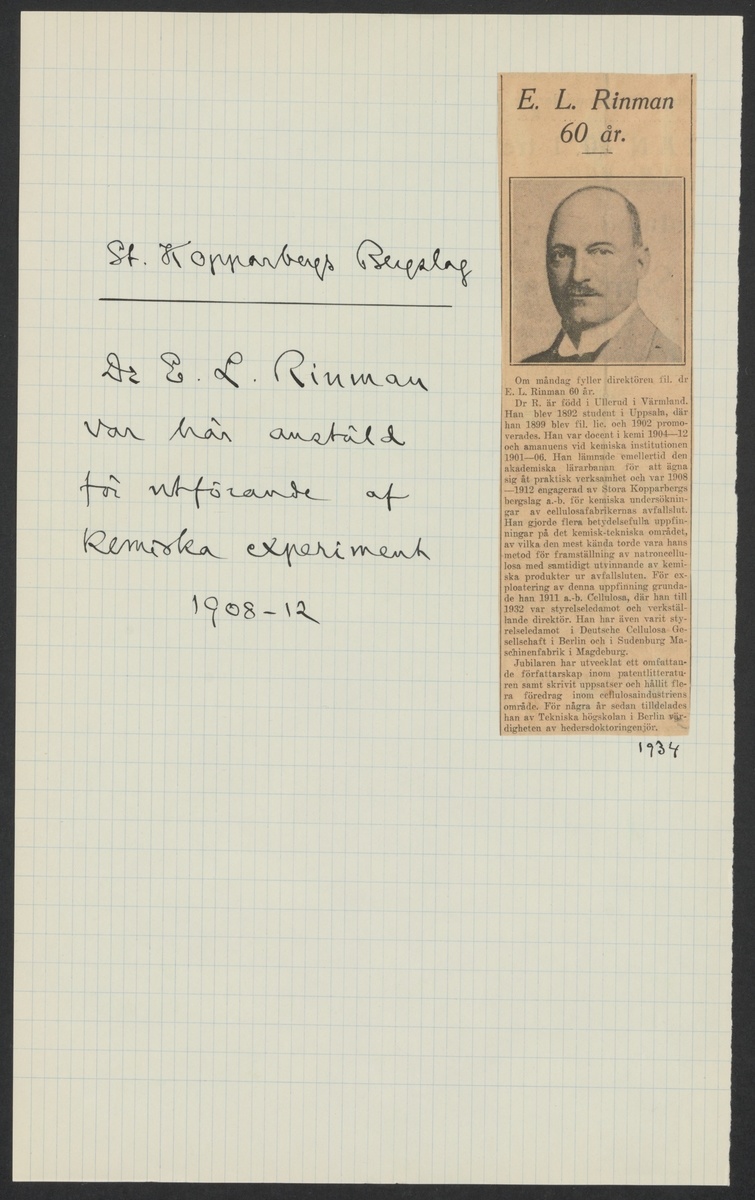 St. Kopparbergs Bergslag
Dr E. L. Rinman
var här anstäld
för utförande af
kemiska experiment
1908-12
E. L. Rinman
60 år.
Om måndag fyller direktören fil. dr
E. L. Rinman 60 år.
Dr R. är född i Ullerud i Värmland.
Han blev 1892 student i Uppsala, där
han 1899 blev fil. lic. och 1902 promo-
verades. Han var docent i kemi 1904—12
och amanuens vid kemiska institutionen
1901—06. Han lämnade emellertid den
akademiska lärarbanan för att ägna
sig åt praktisk verksamhet och var 1908
—1912 engagerad av Stora Kopparbergs
bergslag a.-b. för kemiska undersöknin-
gar av cellulosafabrikernas avfallslut.
Han gjorde flera betydelsefulla uppfin-
ningar på det kemisk-tekniska området,
av vilka den mest kända torde vara hans
metod för framställning av natroncellu-
losa med samtidigt utvinnande av kemi-
ska produkter ur avfallsluten. För ex-
ploatering av denna uppfinning grunda-
de han 1911 a.-b. Cellulosa, där han till
1932 var styrelseledamot och verkstäl-
lande direktör. Han har även varit sty-
relseledamot i Deutsche Cellulosa Ge-
sellschaft i Berlin och i Sudenburg Ma-
schinenfabrik i Magdeburg.
Jubilaren har utvecklat ett omfattan-
de författarskap inom patentlitteratu-
ren samt skrivit uppsatser och hållit fle-
ra föredrag inom cellulosaindustriens
område. För några år sedan tilldelades
han av Tekniska högskolan i Berlin vär-
digheten av hedersdoktoringenjör.
1934